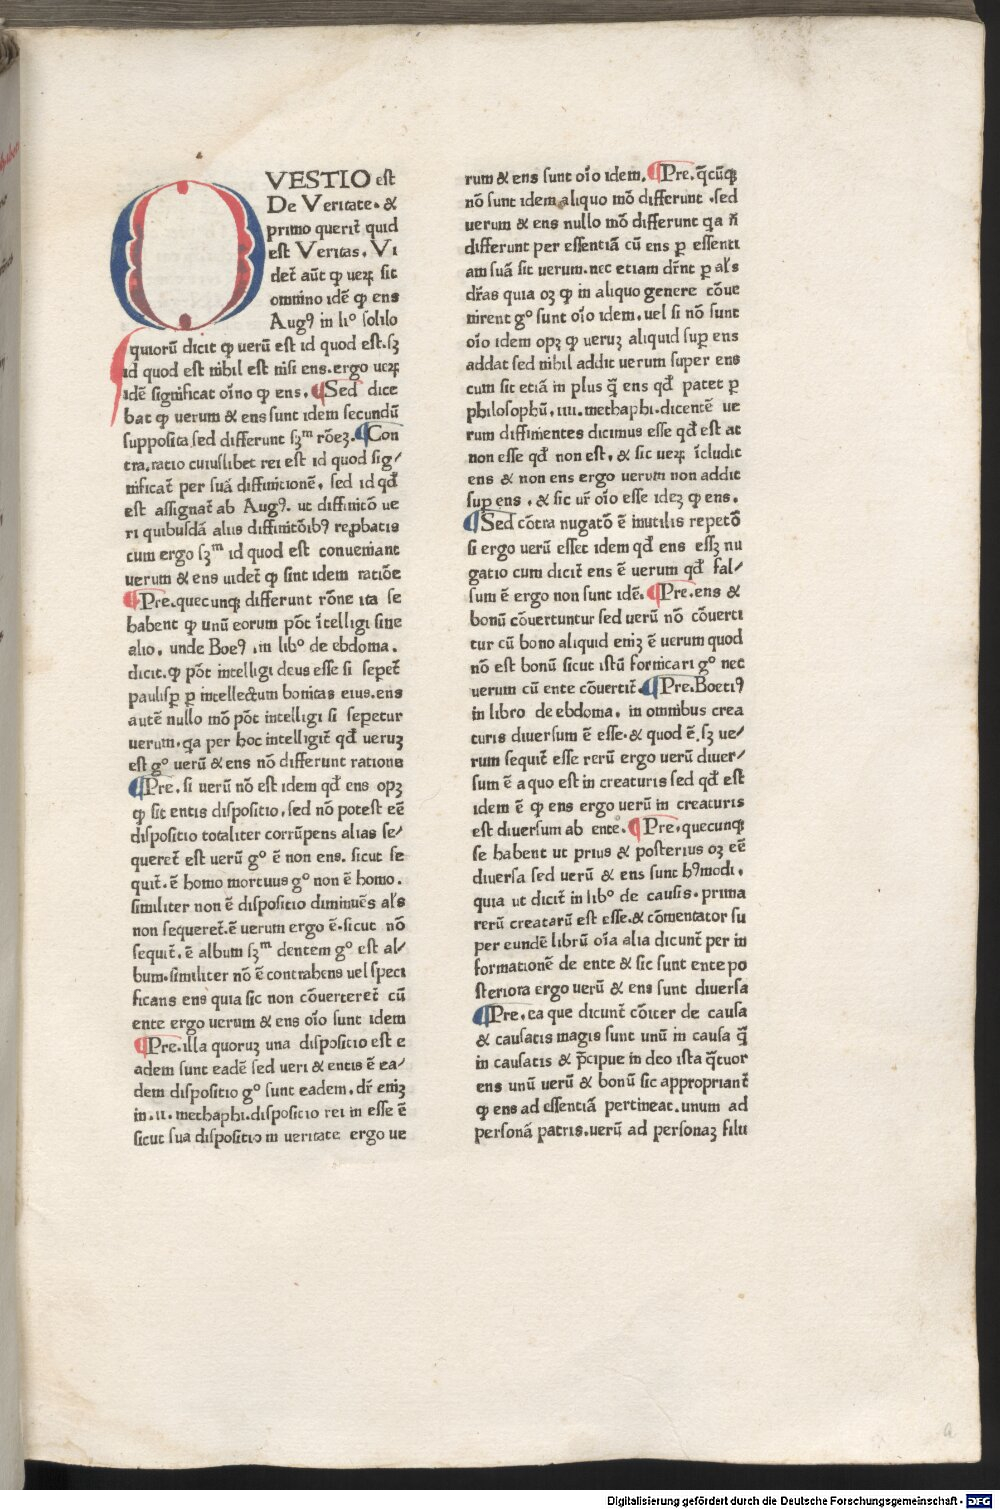 QVESTIO est
De Veritate. &
primo querit̄ quid
est Veritas. Vi
det̄ aūt ꝙ ueꝝ sit
omnino idē ꝙ ens
Augꝰ in liº solilo
quiorū dicit ꝙ uerū est id quod est. sꝫ
id quod est nihil est nisi ens. ergo ueꝝ
idē significat oīno ꝙ ens. ¶Sed dice
bat ꝙ uerum & ens sunt idem secundū
supposita sed differunt sꝫᵐ rōeꝫ. ¶Con
tra. ratio cuiuslibet rei est id quod sig/
nificat̄ per suā diffinitionē, sed id qd̄
est assignat̄ ab Augꝰ. ut diffinitō ue
ri quibusdā aliis diffinitōibꝰ reꝓbatis
cum ergo sꝫᵐ id quod est conueniant
uerum & ens uidet̄ ꝙ sint idem ratiōe
¶Pre. quecunqꝫ differunt rōne ita se
habent ꝙ unū eorum pōt ītelligi sine
alio. unde Boeꝰ .in libº de ebdoma.
dicit. ꝙ pōt intelligi deus esse si sepet̄
paulisꝑ ꝑ intellectum bonitas eius. ens
autē nullo mō pōt intelligi si sepetur
uerum. qa per hoc intelligit̄ qd̄ ueruꝫ
est gº uerū & ens nō differunt ratione
¶Pre. si uerū nō est idem qd̄ ens opꝫ
ꝙ sit entis dispositio, sed nō potest eē
dispositio totaliter corrūpens alias se/
queret̄ est uerū gº ē non ens. sicut se
quit̄. ē homo mortuus gº non ē homo.
similiter non ē dispositio diminuēs al's
non sequeret̄. ē uerum ergo ē. sicut nō
sequit̄. ē album sꝫᵐ dentem gº est al/
bum. similiter nō ē contrahens uel speci
ficans ens quia sic non cōuerteret̄ cū
ente ergo uerum & ens oīo sunt idem
¶Pre. illa quoruꝫ una dispositio est e
adem sunt eadē sed ueri & entis ē ea/
dem dispositio gº sunt eadem. dr̄ eniꝫ
in .ii. methaphi. dispositio rei in esse ē
sicut sua dispositio in ueritate ergo ue
rum & ens sunt oīo idem. ¶Pre. q̄cūqꝫ
nō sunt idem aliquo mō differunt . sed
uerum & ens nullo mō differunt qa n̄
differunt per essentiā cū ens ꝑ essenti
am suā sit uerum. nec etiam dr̄nt ꝑ al's
dr̄as quia oꝫ ꝙ in aliquo genere cōue
nirent gº sunt oīo idem. uel si nō sunt
oīo idem opꝫ ꝙ ueruꝫ aliquid suꝑ ens
addat sed nihil addit uerum super ens
cum sit etiā in plus q̄ ens qd̄ patet ꝑ
philosophū. iiii. methaphi. dicentē ue
rum diffinientes dicimus esse qd̄ est at
non esse qd̄ non est, & sic ueꝝ īcludit
ens & non ens ergo uerum non addit
suꝑ ens . & sic ur̄ oīo esse ideꝫ ꝙ ens.
¶Sed cōtra nugatō ē inutilis repetō
si ergo uerū esset idem qd̄ ens essꝫ nu
gatio cum dicit̄ ens ē uerum qd̄ fal/
sum ē ergo non sunt idē. ¶Pre. ens &
bonū cōuertuntur sed uerū nō cōuerti
tur cū bono aliquid eniꝫ ē uerum quod
nō est bonū sicut istū fornicari gº nec
uerum cū ente cōuertit̄. ¶Pre. Boetiꝰ
in libro de ebdoma. in omnibus crea
turis diuersum ē esse. & quod ē. sꝫ ue/
rum sequit̄ esse rerū ergo uerū diuer/
sum ē a quo est in creaturis sed qd̄ est
idem ē ꝙ ens ergo uerū in creaturis
est diuersum ab ente. ¶Pre. quecunqꝫ
se habent ut prius & posterius oꝫ eē
diuersa sed uerū & ens sunt hꝰmodi.
quia ut dicit̄ in libº de causis. prima
rerū creatarū est esse. & cōmentator su
per eundē librū oīa alia dicunt̄ per in
formationē de ente & sic sunt ente po
steriora ergo uerū & ens sunt diuersa
¶Pre. ea que dicunt̄ cōiter de causa
& causatis magis sunt unū in causa q̄
in causatis & p̄cipue in deo ista q̄tuor
ens unū uerū & bonū sic appropriant̄
ꝙ ens ad essentiā pertineat. unum ad
personā patris. uerū ad personaꝫ filii
a
Digitalisierung gefördert durch die Deutsche Forschungsgemeinschaft - DFG